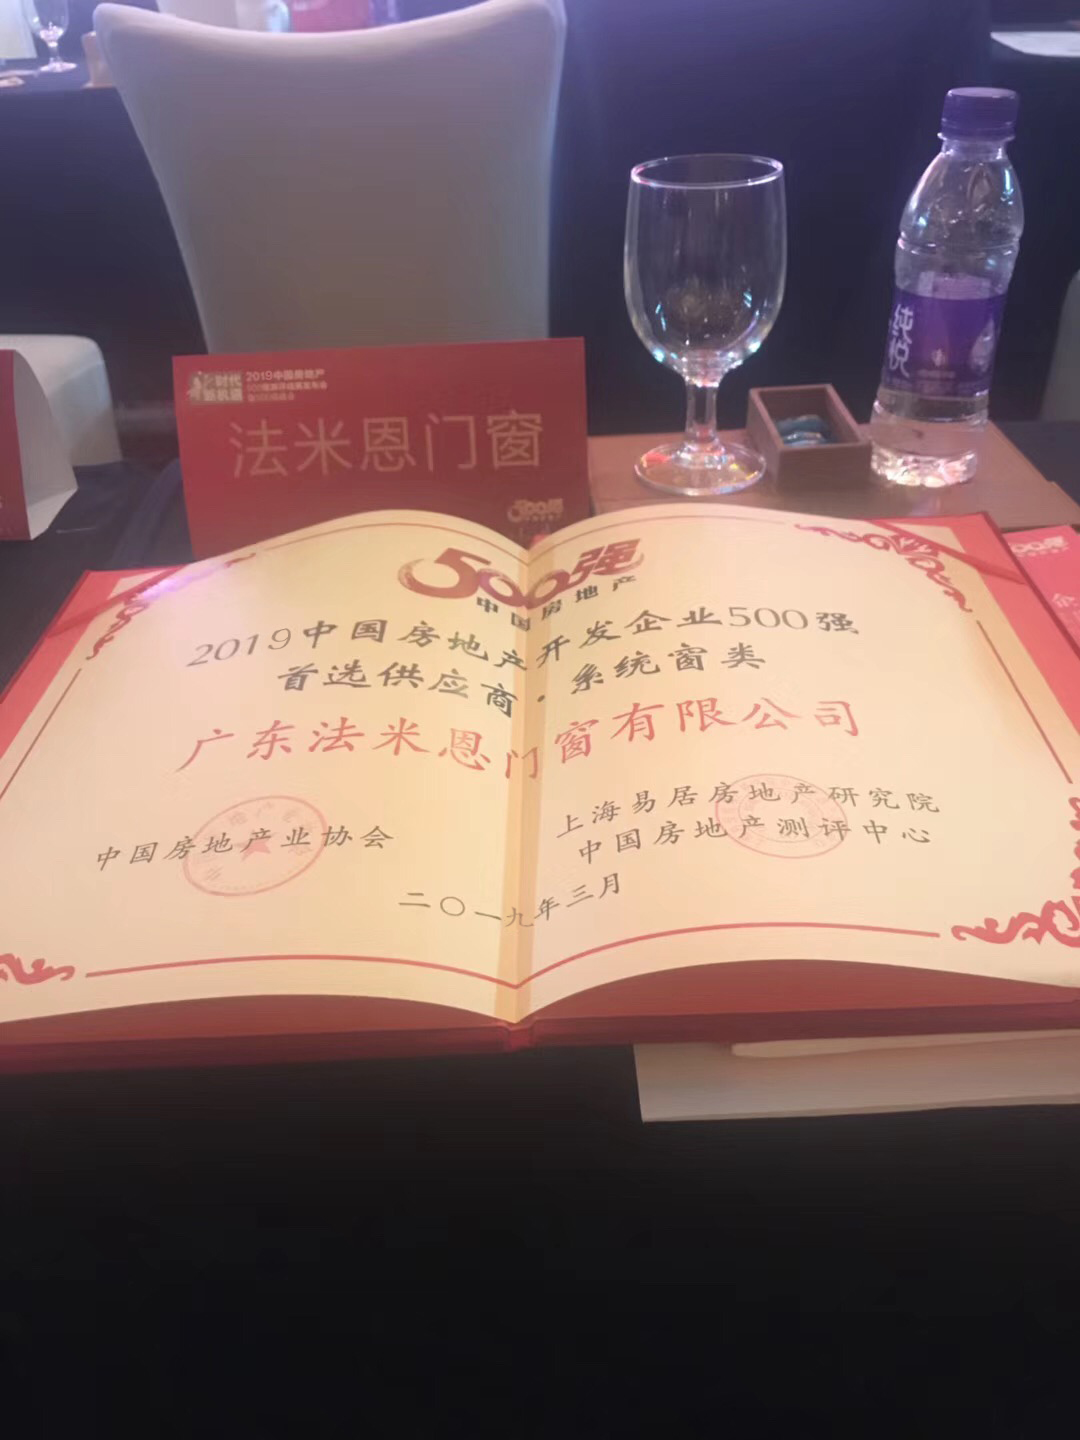 时代
新机遇
2019中国房地产
法米恩门窗
500强
500强
中国房地产
2019中国房地产开发企业500强
首选供应商·系统窗类
广东法米恩门窗有限公司
中国房地产业协会
上海易居房地产研究院
中国房地产测评中心
二〇一九年三月
纯悦